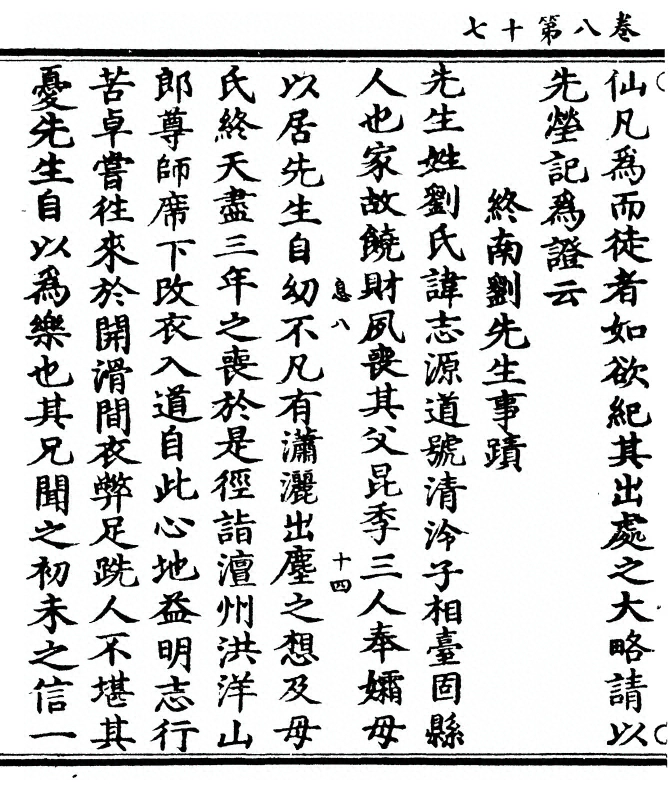 卷八第十七
仙凡爲而徒者如欲紀其出處之大略請以
先塋記爲證云
終南劉先生事蹟
先生姓劉氏諱志源道號清泠子相臺固縣
人也家故饒財夙喪其父昆季三人奉孀母
息八
十四
以居先生自幼不凡有瀟灑出塵之想及母
氏終天盡三年之喪於是徑詣澶州洪洋山
郎尊師席下改衣入道自此心地益明志行
苦卓嘗往來於開滑間衣弊足跣人不堪其
憂先生自以爲樂也其兄聞之初未之信一